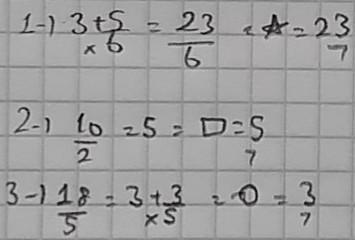 1-) 3 + 5/6 = 23/6 = ☆ = 23
x 7
2-) 10/2 = 5 = □ = 5
7
3-) 18/5 = 3 + 3/5 = O = 3
x 7